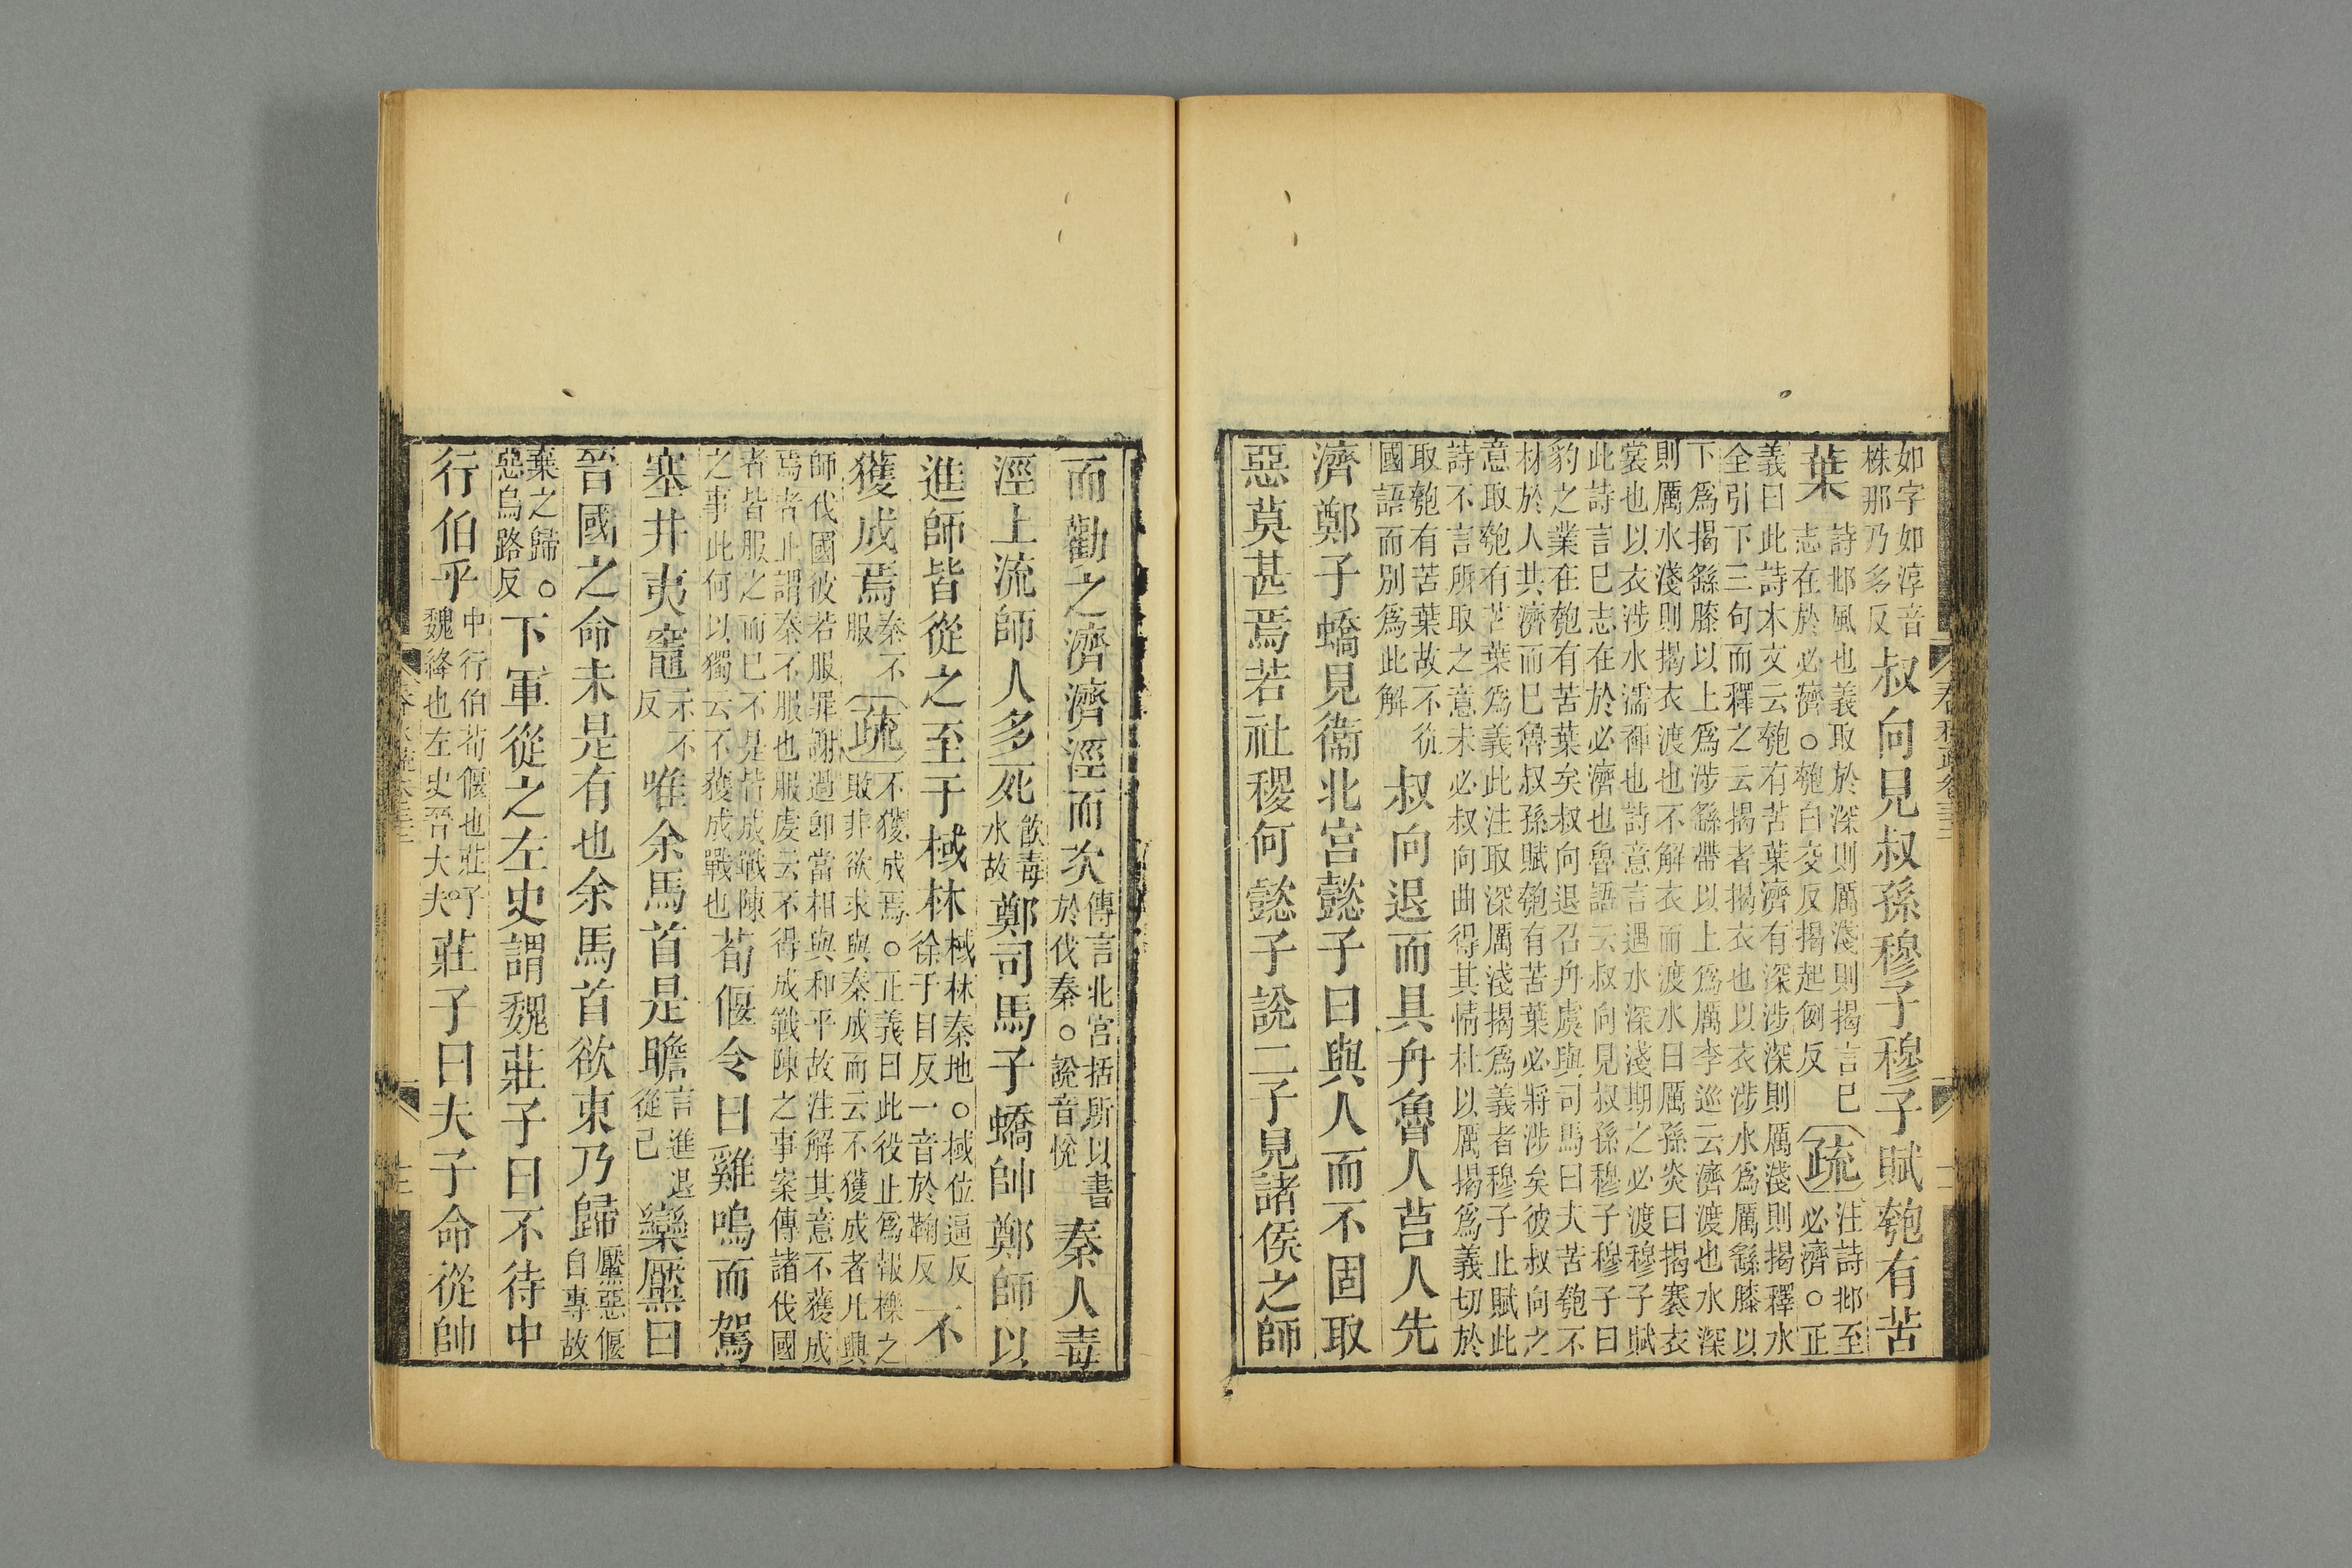 如字如淳音
株那乃多反
叔向見叔孫穆子穆子賦匏有苦
葉
詩邶風也義取於深則厲淺則揭言巳
志在於必濟○匏白交反揭起例反
疏
注詩邶至
必濟○正
義曰此詩本文云匏有苦葉濟有深涉深則厲淺則揭釋水
全引下三句而釋之云揭者揭衣也以衣涉水爲厲繇膝以
下爲揭繇膝以上爲涉繇帶以上爲厲李巡云濟渡也水深
則厲水淺則揭衣渡也不解衣而渡水曰厲孫炎曰揭褰衣
裳也以衣涉水濡褌也詩意言遇水深淺期之必渡穆子賦
此詩言巳志在於必濟也魯語云叔向見叔孫穆子穆子曰
豹之業在匏有苦葉矣叔向退召舟虞與司馬曰夫苦匏不
材於人共濟而巳魯叔孫賦匏有苦葉必將涉矣彼叔向之
意取匏有苦葉爲義此注取深厲淺揭爲義者穆子止賦此
詩不言所取之意未必叔向曲得其情杜以厲揭爲義切於
取匏有苦葉故不從
國語而別爲此解
叔向退而具舟魯人莒人先
濟鄭子蟜見衞北宮懿子曰與人而不固取
惡莫甚焉若社稷何懿子說二子見諸侯之師
而勸之濟濟涇而次
傳言北宮括所以書
於伐秦○說音悅
秦人毒
涇上流師人多死
飲毒
水故
鄭司馬子蟜帥鄭師以
進師皆從之至于棫林
棫林秦地○棫位逼反
徐于目反一音於鞠反
不
獲成焉
秦不
服
疏
不獲成焉○正義曰此役止爲報櫟之
敗非欲求與秦成而云不獲成者凡興
師伐國彼若服罪謝過卽當相與和平故注解其意不獲成
焉者止謂秦不服也服虔云不得成戰陳之事案傳諸伐國
者皆服之而巳不是皆成戰陳
之事此何以獨云不獲成戰也
荀偃令曰雞鳴而駕
塞井夷竈
示不
反
唯余馬首是瞻
言進退
從己
欒黶曰
晉國之命未是有也余馬首欲東乃歸
黶惡偃
自專故
棄之歸○
惡烏路反
下軍從之左史謂魏莊子曰不待中
行伯乎
中行伯荀偃也莊子
魏絳也左史晉大夫
莊子曰夫子命從帥